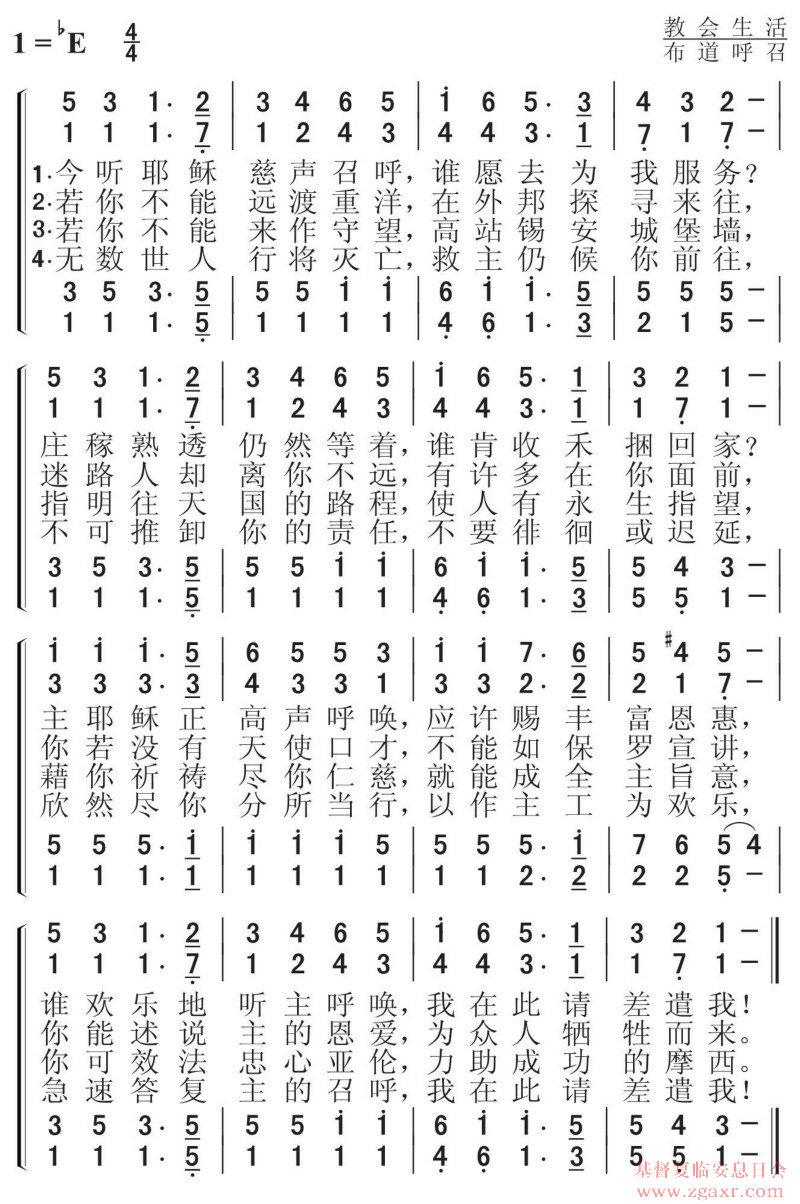 1=♭E 4/4
教会生活
布道呼召
5 3 1· 2 | 3 4 6 5 | i 6 5· 3 | 4 3 2 –
1 1 1· 7 | 1 2 4 3 | 4 4 3· 1 | 7 1 7 –
1·今听耶稣 慈声召呼，谁愿去为 我服务？
2·若你不能 远渡重洋，在外邦探 寻来往，
3·若你不能 来作守望，高站锡安 城堡墙，
4·无数世人 行将灭亡，救主仍候 你前往，
3 5 3· 5 | 5 5 i i | 6 i i· 5 | 5 5 5 –
1 1 1· 5 | 1 1 1 1 | 4 6 1· 3 | 2 1 5 –
5 3 1· 2 | 3 4 6 5 | i 6 5· 1 | 3 2 1 –
1 1 1· 7 | 1 2 4 3 | 4 4 3· 1 | 1 7 1 –
庄稼熟透 仍然等着，谁肯收禾 捆回家？
迷路人却 离你不远，有许多在 你面前，
指明往天 国的路程，使人有永 生指望，
不可推卸 你的责任，不要徘徊 或迟延，
3 5 3· 5 | 5 5 i i | 6 i i· 5 | 5 4 3 –
1 1 1· 5 | 1 1 1 1 | 4 6 1· 3 | 5 5 1 –
i i i· 5 | 6 5 5 3 | i i 7· 6 | 5 #4 5 –
3 3 3· 3 | 4 3 3 1 | 3 3 2· 2 | 2 1 7 –
主耶稣正 高声呼唤，应许赐丰 富恩惠，
你若没有 天使口才，不能如保 罗宣讲，
藉你祈祷 尽你仁慈，就能成全 主旨意，
欣然尽你 分所当行，以作主工 为欢乐，
5 5 5· i | i i i 5 | 5 5 5· i | 7 6 5 4
1 1 1· 1 | 1 1 1 1 | 1 1 2· 2 | 2 2 5 –
5 3 1· 2 | 3 4 6 5 | i 6 5· 1 | 3 2 1 –
1 1 1· 7 | 1 2 4 3 | 4 4 3· 1 | 1 7 1 –
谁欢乐地 听主呼唤，我在此请 差遣我！
你能述说 主的恩爱，为众人牺 牲而来。
你可效法 忠心亚伦，力助成功 的摩西。
急速答复 主的召呼，我在此请 差遣我！
3 5 3· 5 | 5 5 i i | 6 i i· 5 | 5 4 3 –
1 1 1· 5 | 1 1 1 1 | 4 6 1· 3 | 5 5 1 –
基督复临安息日会
www.zgaxr.com